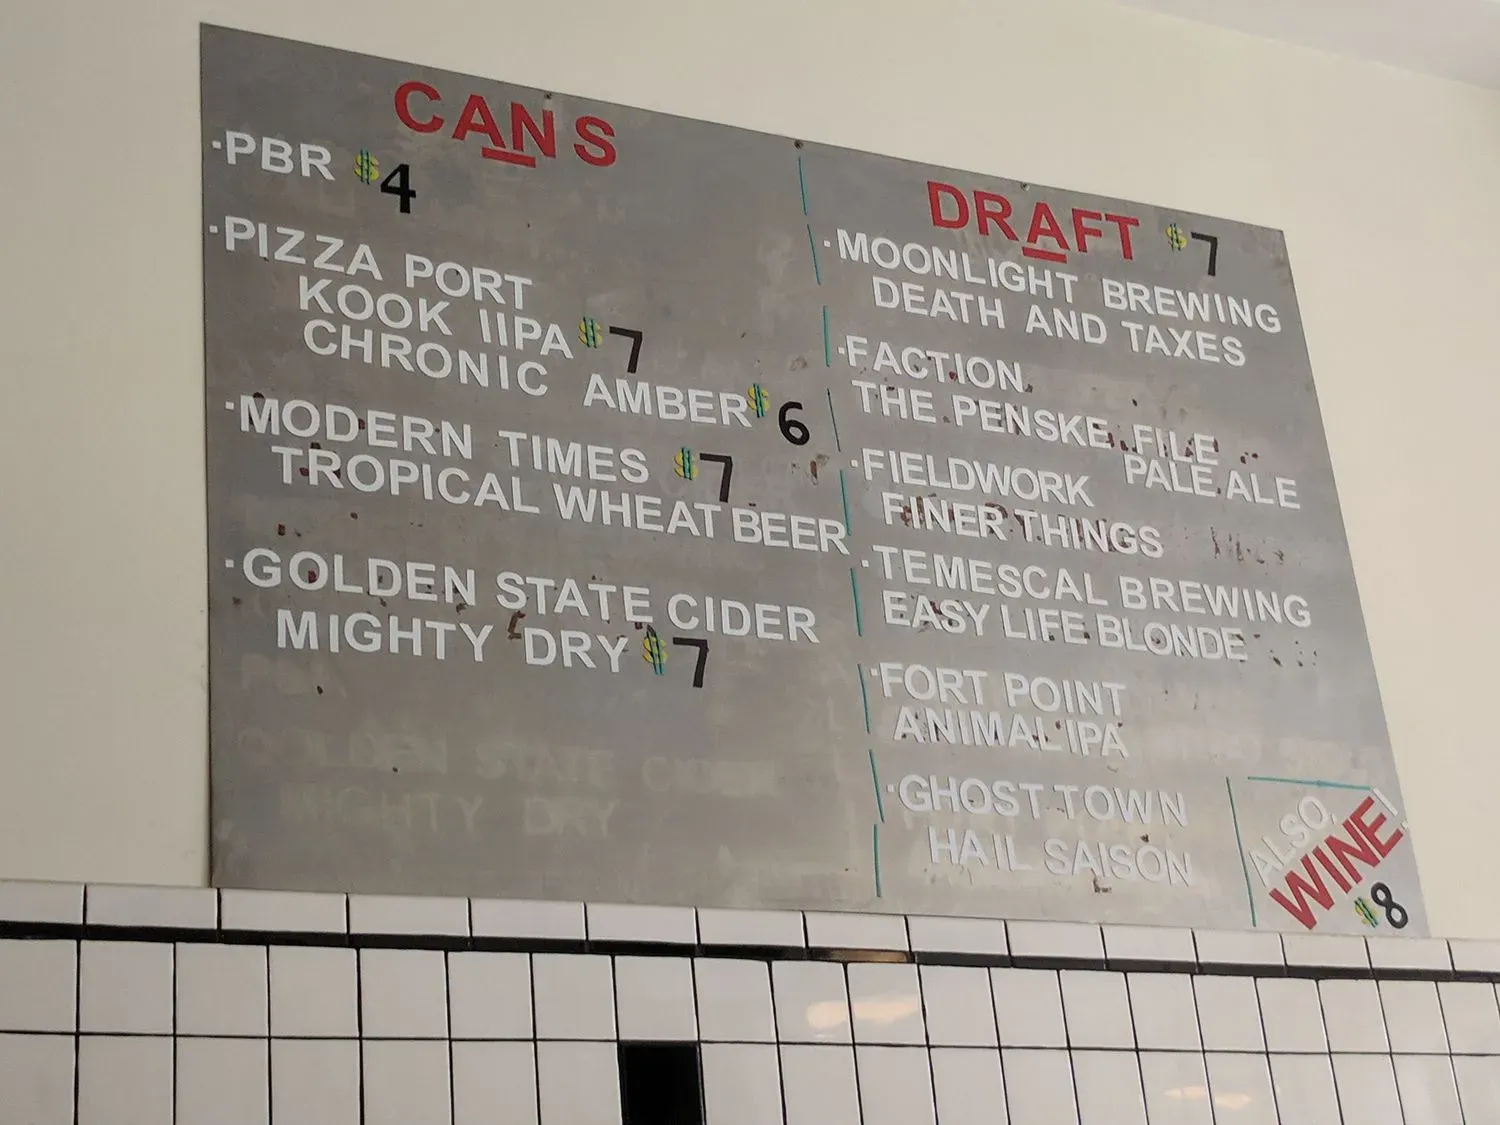 CANS
·PBR $4
·PIZZA PORT
KOOK IIPA $7
CHRONIC AMBER $6
·MODERN TIMES $7
TROPICAL WHEAT BEER
·GOLDEN STATE CIDER
MIGHTY DRY $7
DRAFT $7
·MOONLIGHT BREWING
DEATH AND TAXES
·FACTION
THE PENSKE FILE
PALE ALE
·FIELDWORK
FINER THINGS
·TEMESCAL BREWING
EASY LIFE BLONDE
·FORT POINT
ANIMAL IPA
·GHOST TOWN
HAIL SAISON
ALSO,
WINE!
$8